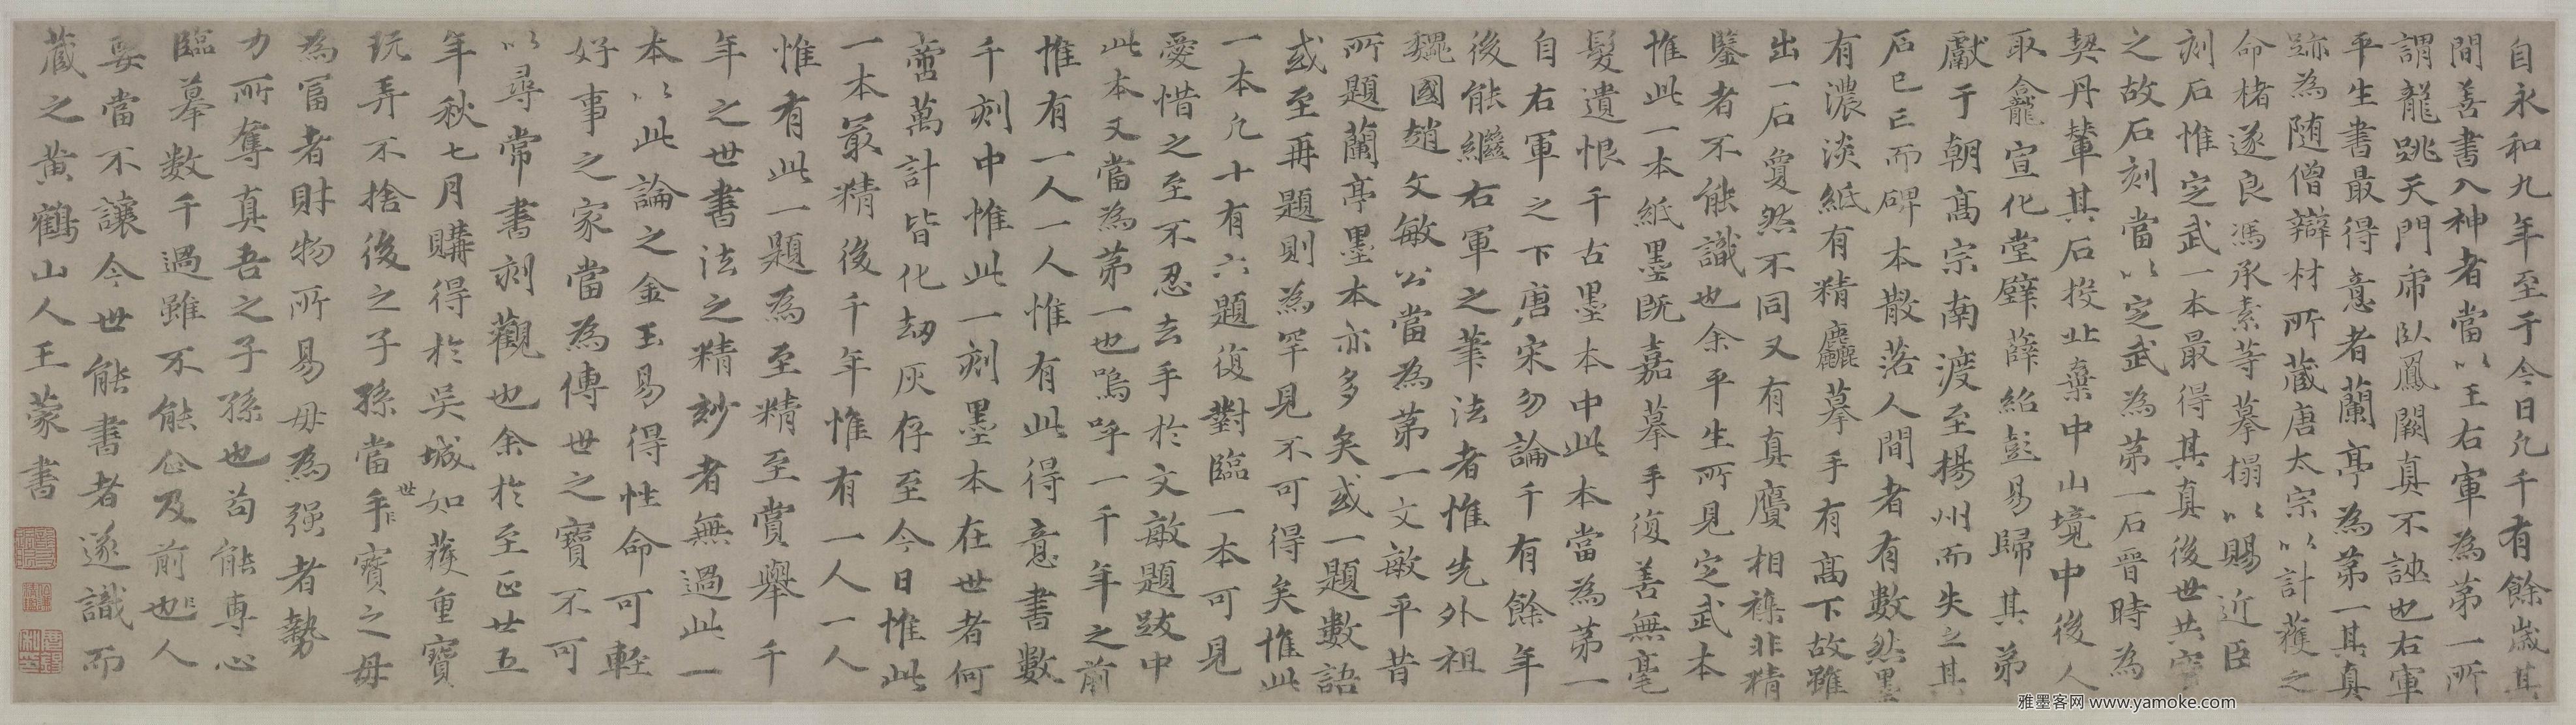 自永和九年至于今日凡千有餘歲其
間善書入神者當以王右軍為第一所
謂龍跳天門虎臥鳳闕真不誣也右軍
平生書最得意者蘭亭為第一其真
跡為随僧辯材所蔵唐太宗以計獲之
命楮遂良馮承素等摹搨以賜近臣
刻石惟定武一本最得其真後世共宗
之故石刻當以定武為第一石晋時為
契丹輦其石投止棄中山境中後人
取龕宣化堂壁薛紹彭易歸其弟
獻于朝高宗南渡至揚州而失之其
石已亡而碑本散落人間者有數然墨
有濃淡紙有精麤摹手有高下故雖
出一石敻然不同又有真贗相襍非精
鑒者不能識也余平生所見定武本
惟此一本紙墨既嘉摹手復善無毫
髮遺恨千古墨本中此本當為第一
自右軍之下唐宋勿論千有餘年
後能繼右軍之筆法者惟先外祖
魏國趙文敏公當為第一文敏平昔
所題蘭亭墨本亦多矣或一題數語
或至再題則為罕見不可得矣惟此
一本凡十有六題復對臨一本可見
愛惜之至不忍去手於文敏題跋中
此本又當為第一也嗚呼一千年之前
惟有一人一人惟有此得意書數
千刻中惟此一刻墨本在世者何
啻萬計皆化劫灰存至今日惟此
一本最精後千年惟有一人一人
惟有此一題為至精至賞舉千
年之世書法之精妙者無過此一
本以此論之金玉易得性命可輕
好事之家當為傳世之寶不可
以尋常書刻觀也余於至正廿五
年秋七月購得於吳城如獲重寶
玩弄不捨後之子孫當世手寶之毋
為富者財物所易毋為强者勢
力所奪真吾之子孫也苟能專心
臨摹数千過雖不能企及前也人
要當不讓今世能書者遂識而
蔵之黄鶴山人王蒙書
雅墨客网 www.yamoke.com